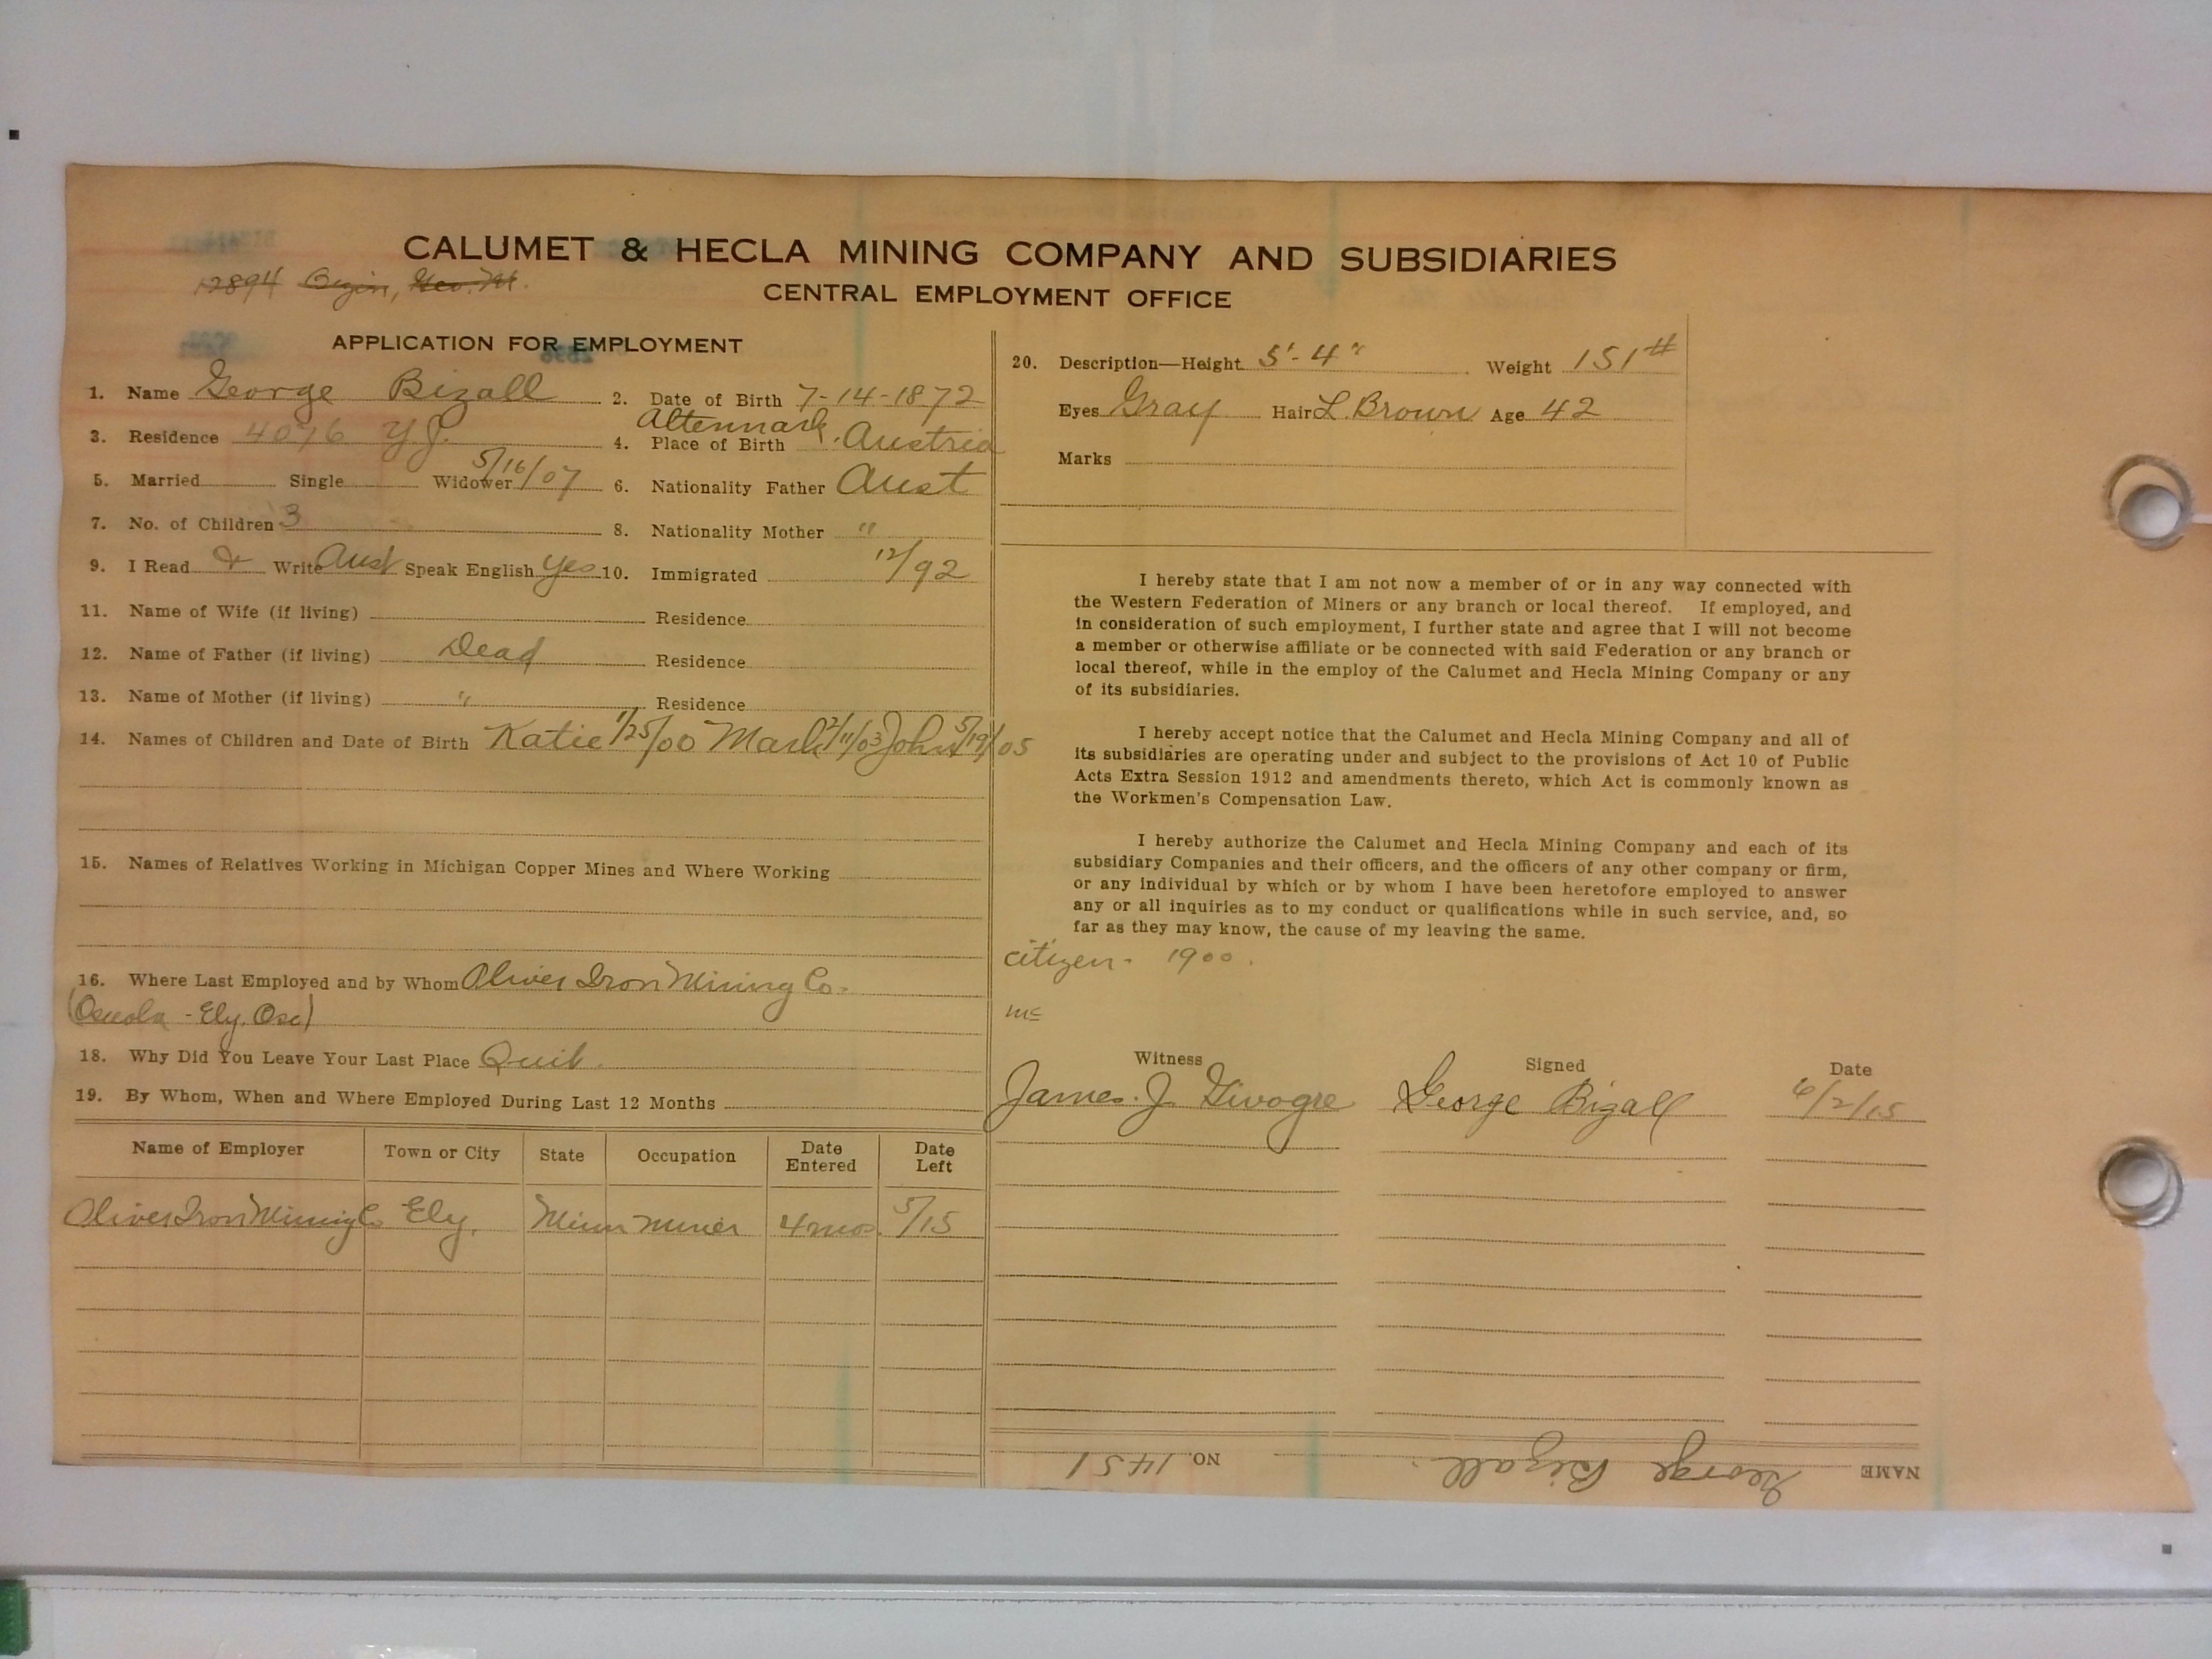 CALUMET & HECLA MINING COMPANY AND SUBSIDIARIES
12894 Bizin, Geo. M.
CENTRAL EMPLOYMENT OFFICE
APPLICATION FOR EMPLOYMENT
1. Name George Bizall 2. Date of Birth 7-14-1872
3. Residence 4076 Y.J. 4. Place of Birth Altenmark, Austria
5. Married Single Widower 5/16/07 6. Nationality Father Aust
7. No. of Children 3 8. Nationality Mother "
9. I Read & Write Aust Speak English Yes 10. Immigrated 12/92
11. Name of Wife (if living) Residence
12. Name of Father (if living) Dead Residence
13. Name of Mother (if living) " Residence
14. Names of Children and Date of Birth Katie 1/25/00 Mark 2/11/03 John 5/19/05
15. Names of Relatives Working in Michigan Copper Mines and Where Working
16. Where Last Employed and by Whom Oliver Iron Mining Co.
(Osceola - Ely. Osc)
18. Why Did You Leave Your Last Place Quit.
19. By Whom, When and Where Employed During Last 12 Months
Name of Employer Town or City State Occupation Date Entered Date Left
Oliver Iron Mining Co Ely, Minn Miner 4 mos. 5/15
20. Description—Height 5'-4" Weight 151#
Eyes Gray Hair L. Brown Age 42
Marks
I hereby state that I am not now a member of or in any way connected with
the Western Federation of Miners or any branch or local thereof. If employed, and
in consideration of such employment, I further state and agree that I will not become
a member or otherwise affiliate or be connected with said Federation or any branch or
local thereof, while in the employ of the Calumet and Hecla Mining Company or any
of its subsidiaries.
I hereby accept notice that the Calumet and Hecla Mining Company and all of
its subsidiaries are operating under and subject to the provisions of Act 10 of Public
Acts Extra Session 1912 and amendments thereto, which Act is commonly known as
the Workmen's Compensation Law.
I hereby authorize the Calumet and Hecla Mining Company and each of its
subsidiary Companies and their officers, and the officers of any other company or firm,
or any individual by which or by whom I have been heretofore employed to answer
any or all inquiries as to my conduct or qualifications while in such service, and, so
far as they may know, the cause of my leaving the same.
citizen - 1900.
Witness Signed Date
James. J. George Bizall 6/2/15
NAME George Bizall. NO. 1451